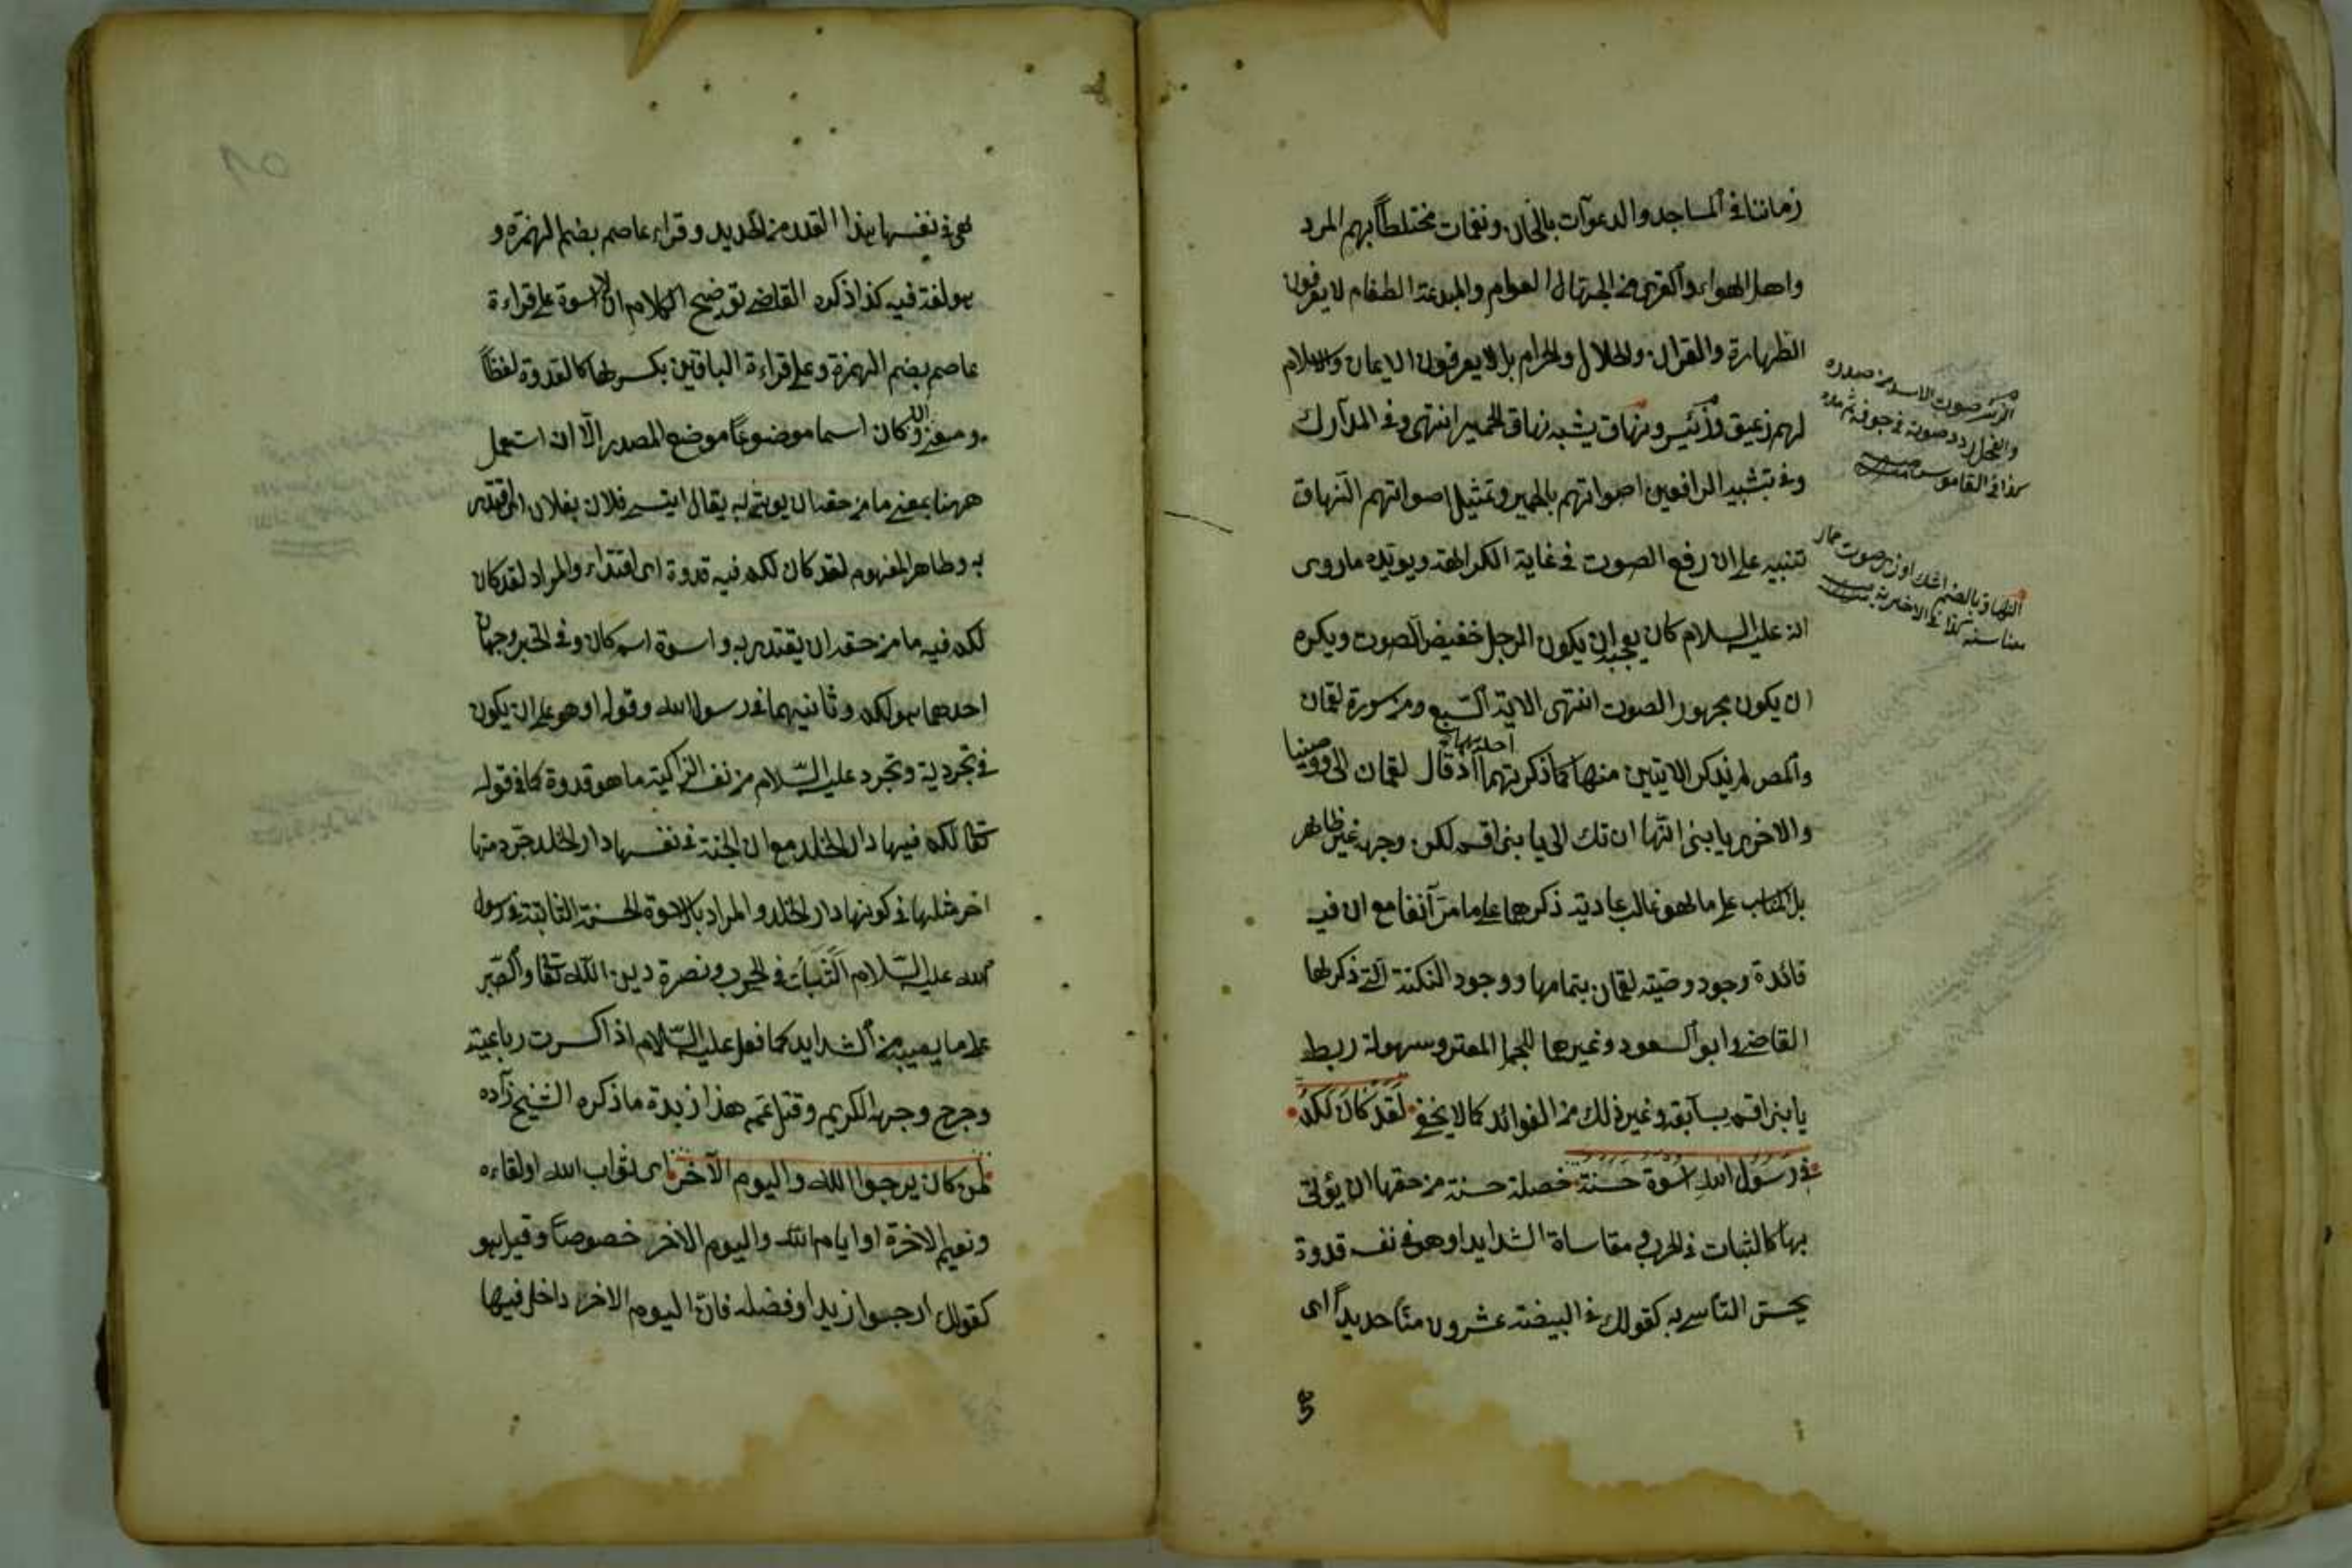 زماننا في المساجد والدعوات بالحان ونغمات مختلطاً بهم المرد
واهل الهواء والقرى من الجهال العوام والمبتدعة الطغام لا يعرفون
الطهارة والقرآن والحلال والحرام بل لا يعرفون الايمان والاسلام
لهم زعيق وزئير ونهاق يشبه نهاق الحمير انتهى وفي المدارك
وفي تشبيه الرافعين اصواتهم بالحمير وتمثيل اصواتهم النهاق
تنبيه على ان رفع الصوت في غاية الكراهة ويويده ماروى
انه عليه السلام كان يعجبه ان يكون الرجل خفيض الصوت ويكره
ان يكون مجهور الصوت انتهى الاية السبع ومن سورة لقمان
والمص لم يذكر الايتين منها كما ذكرتهما اذ قال لقمان الى ووصينا
والاخرى يا بنى انها ان تك الى يا بنى اقم لكن وجهه غير ظاهر
بل الكتاب على ما هو غالب عاديته ذكرهما على ما مر آنفا مع ان فيه
فائدة وجود وصية لقمان بتمامها ووجود النكتة التي ذكرها
القاضي وابو السعود وغيرهما وسهولة ربط
يا بنى اقم بسابقه وغير ذلك من الفوائد كما لا يخفى لَقَدْ كَانَ لَكُمْ
فِي رَسُولِ اللهِ اُسْوَةٌ حَسَنَةٌ خصلة حسنة من حقها ان يؤتى
بها كالثبات في الحرب ومقاساة الشدايد او هو في نفسه قدوة
يحسن التأسي به كقولك في البيضة عشرون منّا حديداً اى
هي
الزئير صوت الاسد من صدره
والفحل ردد صوته في جوفه ثم مده
كذا في القاموس
النهاق بالضم اشك اوزن صوت حمار
هي في نفسها هذا القدر من الحديد وقراء عاصم بضم الهمزة و
هو لغة فيه كذا ذكره القاضي توضيح الكلام ان الاسوة على قراءة
عاصم بضم الهمزة وعلى قراءة الباقين بكسرها كالقدوة لفظاً
ومعنى وان كان اسما موضوعاً موضع المصدر الّا ان استعمل
ههنا بمعنى ما من حقه ان يوتسى به يقال ايتسى فلان بفلان اى اقتدى
به وظاهر المفهوم لقد كان لكم فيه قدوة اى اقتداء والمراد لقد كان
لكم فيه ما من حقه ان يقتدى به واسوة اسم كان وفي الخبر وجهان
احدهما هو لكم وثانيهما في رسول الله وقوله او هو على ان يكون
في تجريدية وتجرد عليه السّلام من نفسه الزاكية ما هو قدوة كما في قوله
تعالى لكم فيها دار الخلد مع ان الجنة في نفسها دار الخلد جرّد منها
اخر مثلها في كونها دار الخلد والمراد بالاسوة الحسنة الثابتة في رسول
الله عليه السّلام الثبات في الحرب ونصرة دين الله تعالى والصبر
على ما يصيبه من الشدايد كما فعل عليه السّلام اذا كسرت رباعيته
وجرح وجهه الكريم وقتل عمه هذا زبدة ما ذكره الشيخ زاده
لمن كان يرجوا الله واليوم الآخر اى ثواب الله او لقاءه
ونعيم الاخرة او ايام الله واليوم الاخر خصوصاً وقيل هو
كقولك ارجوا زيدا وفضله فان اليوم الاخر داخل فيها